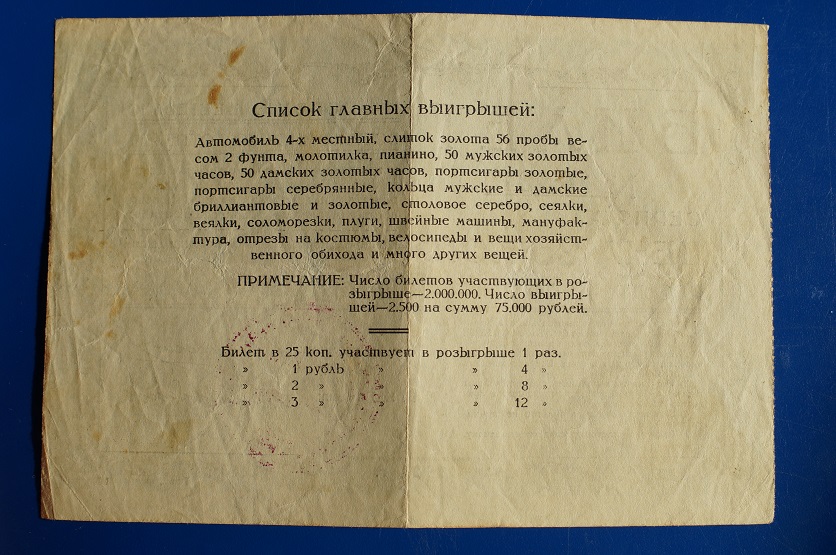 Список главных выигрышей:
Автомобиль 4-х местный, слиток золота 56 пробы ве-
сом 2 фунта, молотилка, пианино, 50 мужских золотых
часов, 50 дамских золотых часов, портсигары золотые,
портсигары серебрянные, кольца мужские и дамские
бриллиантовые и золотые, столовое серебро, сеялки,
веялки, соломорезки, плуги, швейные машины, мануфак-
тура, отрезы на костюмы, велосипеды и вещи хозяйст-
венного обихода и много других вещей.
ПРИМЕЧАНИЕ: Число билетов участвующих в ро-
зыгрыше—2.000.000. Число выигры-
шей—2.500 на сумму 75.000 рублей.
Билет в 25 коп. участвует в розыгрыше 1 раз.
» 1 рубль » » 4 »
» 2 » » » 8 »
» 3 » » » 12 »